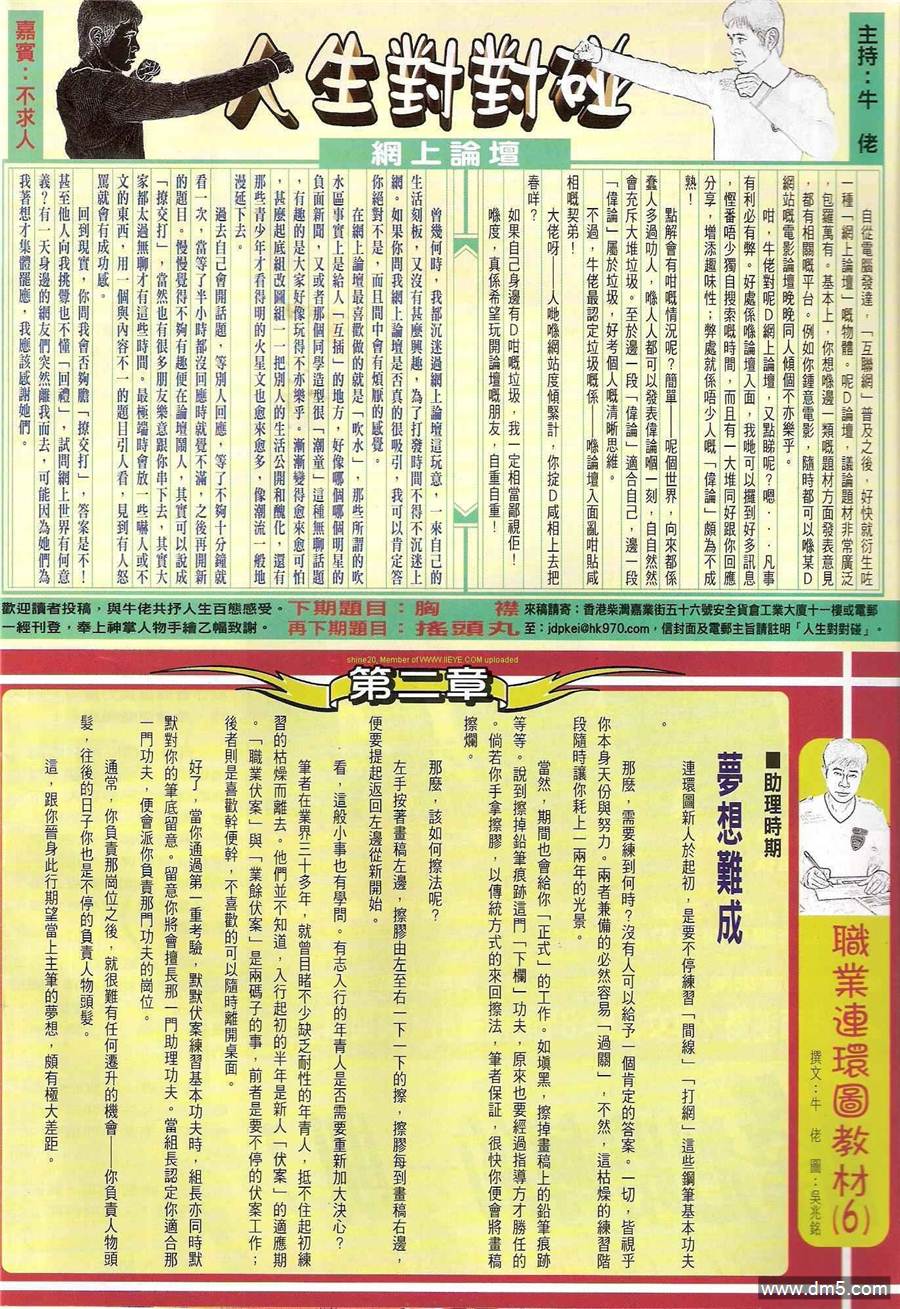 主持：牛 佬
人生對對碰
嘉賓：不求人
網上論壇
自從電腦發達，「互聯網」普及之後，好快就衍生咗
一種「網上論壇」嘅物體。呢D論壇，議論題材非常廣泛
，包羅萬有。基本上，你想喺邊一類嘅題材方面發表意見
，都有相關嘅平台。例如你鍾意電影，隨時都可以喺某D
網站嘅電影論壇晚晚同人傾個不亦樂乎。
咁，牛佬對呢D網上論壇，又點睇呢？嗯．．．凡事
有利必有弊。好處係喺論壇入面，我哋可以攞到好多訊息
，慳番唔少獨自搜索嘅時間，而且有一大堆同好跟你回應
分享，增添趣味性；弊處就係唔少人嘅「偉論」頗為不成
熟！
點解會有咁嘅情況呢？簡單——呢個世界，向來都係
蠢人多過叻人，喺人人都可以發表偉論嗰一刻，自自然然
會充斥大堆垃圾。至於邊一段「偉論」適合自己，邊一段
「偉論」屬於垃圾，好考個人嘅清晰思維。
不過，牛佬最認定垃圾嘅係——喺論壇入面亂咁貼咸
相嘅契弟！
大佬呀——人哋喺網站度傾緊計，你掟D咸相上去把
春咩？
如果自己身邊有D咁嘅垃圾，我一定相當鄙視佢！
喺度，真係希望玩開論壇嘅朋友，自重自重！
曾幾何時，我都沉迷過網上論壇這玩意，一來自己的
生活刻板，又沒有甚麼興趣，為了打發時間不得不沉迷上
網。如果你問我網上論壇是否真的很吸引，我可以肯定答
你絕對不是，而且間中會有煩厭的感覺。
在網上論壇最喜歡做的就是「吹水」，那些所謂的吹
水區事實上是給人「互插」的地方，好像哪個哪個明星的
負面新聞，又或者那個同學造型很「潮童」這種無聊話題
，有趣的是大家好像玩得不亦樂乎。漸漸變得愈來愈可怕
，甚麼起底組改圖組一一把別人的生活公開和醜化，還有
那些青少年才看得明的火星文也愈來愈多，像潮流一般地
漫延下去。
過去自己會開話題，等別人回應，等了不夠十分鐘就
看一次，當等了半小時都沒回應時就覺不滿，之後再開新
的題目。慢慢覺得不夠有趣便在論壇鬧人，其實可以說成
「撩交打」，當然也有很多朋友樂意跟你串下去，其實大
家都太過無聊才有這些時間。最極端時會放一些嚇人或不
文的東西，用一個與內容不一的題目引人看，見到有人怒
罵就會有成功感。
回到現實，你問我會否夠膽「撩交打」，答案是不！
甚至他人向我挑釁也不懂「回禮」，試問網上世界有何意
義？有一天身邊的網友們突然離我而去，可能因為她們為
我著想才集體罷應，我應該感謝她們。
歡迎讀者投稿，與牛佬共抒人生百態感受。
一經刊登，奉上神掌人物手繪乙幅致謝。
下期題目：胸 襟
再下期題目：搖頭丸
來稿請寄：香港柴灣嘉業街五十六號安全貨倉工業大廈十一樓或電郵
至：jdpkei@hk970.com，信封面及電郵主旨請註明「人生對對碰」。
shine20, Member of WWW.IIEYE.COM uploaded
第二章
職業連環圖教材(6)
撰文：牛 佬 圖：吳兆銘
■助理時期
夢想難成
連環圖新人於起初，是要不停練習「間線」、「打網」這些鋼筆基本功夫
。
那麼，需要練到何時？沒有人可以給予一個肯定的答案。一切，皆視乎
你本身天份與努力。兩者兼備的必然容易「過關」，不然，這枯燥的練習階
段隨時讓你耗上一兩年的光景。
當然，期間也會給你「正式」的工作。如填黑，擦掉畫稿上的鉛筆痕跡
等等。說到擦掉鉛筆痕跡這門「下欄」功夫，原來也要經過指導方才勝任的
。倘若你手拿擦膠，以傳統方式的來回擦法，筆者保証，很快你便會將畫稿
擦爛。
那麼，該如何擦法呢？
左手按著畫稿左邊，擦膠由左至右一下一下的擦，擦膠每到畫稿右邊，
便要提起返回左邊從新開始。
看，這般小事也有學問。有志入行的年青人是否需要重新加大決心？
筆者在業界三十多年，就曾目睹不少缺乏耐性的年青人，抵不住起初練
習的枯燥而離去。他們並不知道，入行起初的半年是新人「伏案」的適應期
。「職業伏案」與「業餘伏案」是兩碼子的事，前者是要不停的伏案工作；
後者則是喜歡幹便幹，不喜歡的可以隨時離開桌面。
好了，當你通過第一重考驗，默默伏案練習基本功夫時，組長亦同時默
默對你的筆底留意。留意你將會擅長那一門助理功夫。當組長認定你適合那
一門功夫，便會派你負責那門功夫的崗位。
通常，你負責那崗位之後，就很難有任何遷升的機會——你負責人物頭
髮，往後的日子你也是不停的負責人物頭髮。
這，跟你晉身此行期望當上主筆的夢想，頗有極大差距。
www.dm5.com